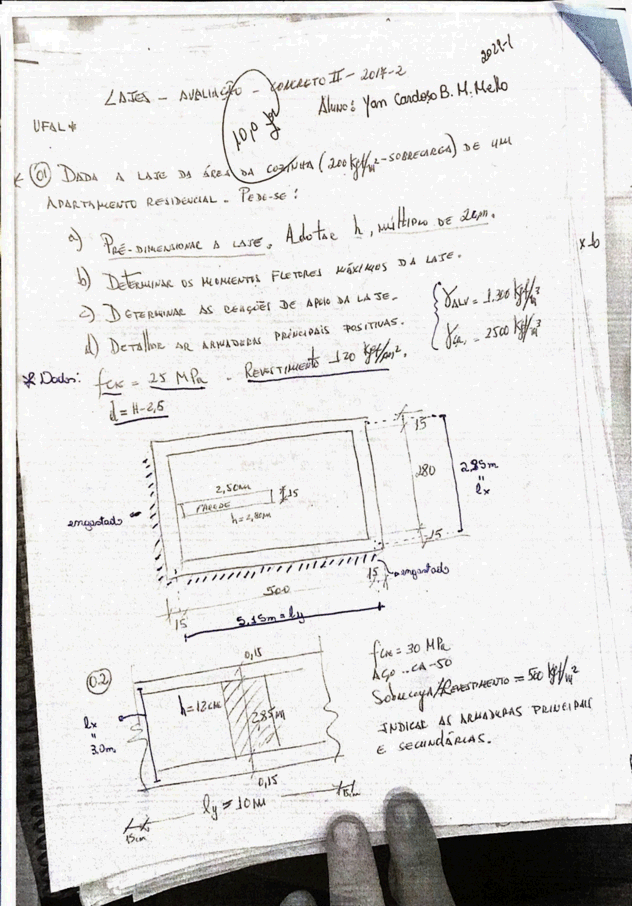 2029-1
LAJES - AVALIAÇÃO - CONCRETO II - 2017-2
Aluno: Yan Cardoso B. M. Mello
UFAL*
10,0
01 DADA A LAJE DA ÁREA DA COZINHA (200 kgf/m² - SOBRECARGA) DE UM
APARTAMENTO RESIDENCIAL. PEDE-SE:
a) PRÉ-DIMENSIONAR A LAJE. Adotar h, MÚLTIPLO DE 2cm.
b) DETERMINAR OS MOMENTOS FLETORES MÁXIMOS DA LAJE.
c) DETERMINAR AS REAÇÕES DE APOIO DA LAJE.
d) DETALHAR AS ARMADURAS PRINCIPAIS POSITIVAS.
γALV = 1.300 kgf/m³
γCA = 2500 kgf/m³
* Dados: fck = 25 MPa - REVESTIMENTO 120 kgf/m².
d = H-2,5
15
280
15
2,95m
"
lx
2,50m
PAREDE
15
h=2,80m
engastado
15
engastado
500
15
5,15m = ly
0.2
0,15
h=12cm
2,85m
lx
"
3,0m
0,15
ly = 10m
15cm
15cm
fck = 30 MPa
AÇO .. CA-50
Sobrecarga/REVESTIMENTO = 500 kgf/m²
INDICAR AS ARMADURAS PRINCIPAIS
E SECUNDÁRIAS.